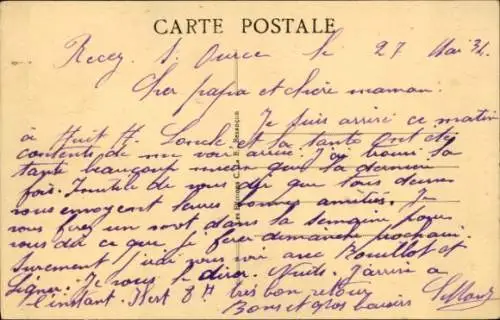 CARTE POSTALE
Recey s. Ource le 27 Mai 31.
Cher papa et chère maman.
Je suis arrivé ce matin
à Huit H. L'oncle et la tante ont été
contents de me voir arrivé. J'ai trouvé la
tante beaucoup mieux que la dernière
fois. Inutile de vous dir que tous deux
vous envoyent leurs bonnes amitiés. Je
vous ferez un mot dans la semaine pour
vous dir ce que je ferez dimanche prochain.
Surement j'irai vous voir avec Bouillot et
Je vous le dirai. Nuits. J'arrive à
l'instant. Il est 8 H très bon retour
Bons et gros baisers